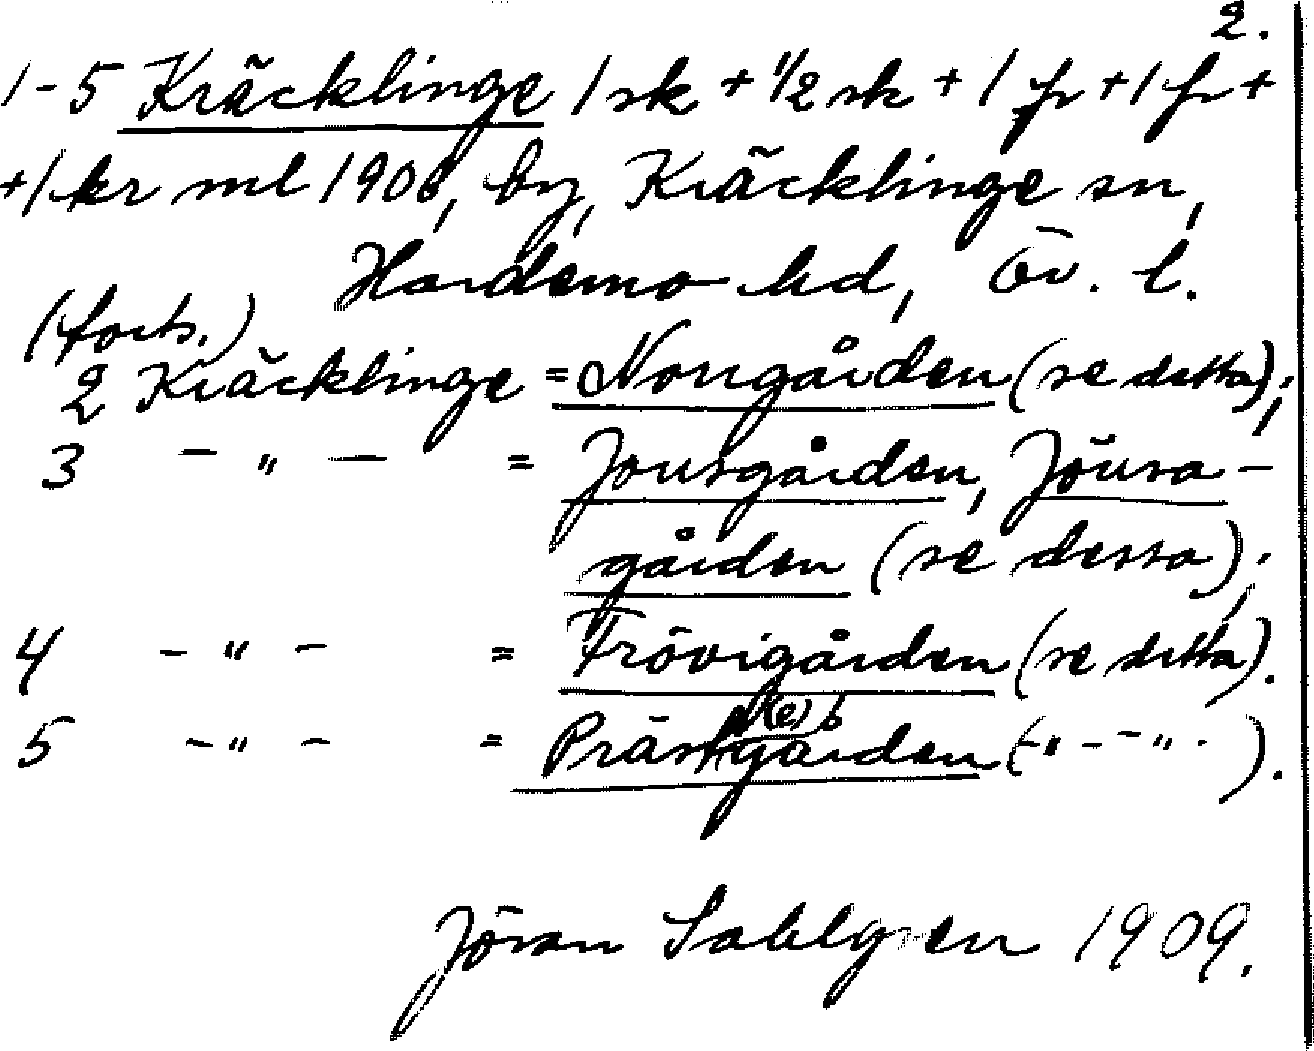 2.
1-5 Kräcklinge 1 sk + 1/2 sk + 1 fr + 1 fr +
+1 kr ml 1906, by, Kräcklinge sn,
Hardemo hd, Ör. l.
(forts.)
2 Kräcklinge = Norrgården (se detta);
3 - " - = Jonsgården, Jönsa-
gården (se dessa);
4 - " - = Frövigården (se detta).
5 - " - = Prästgården (-"- -"-).
Jöran Sahlgren 1909.